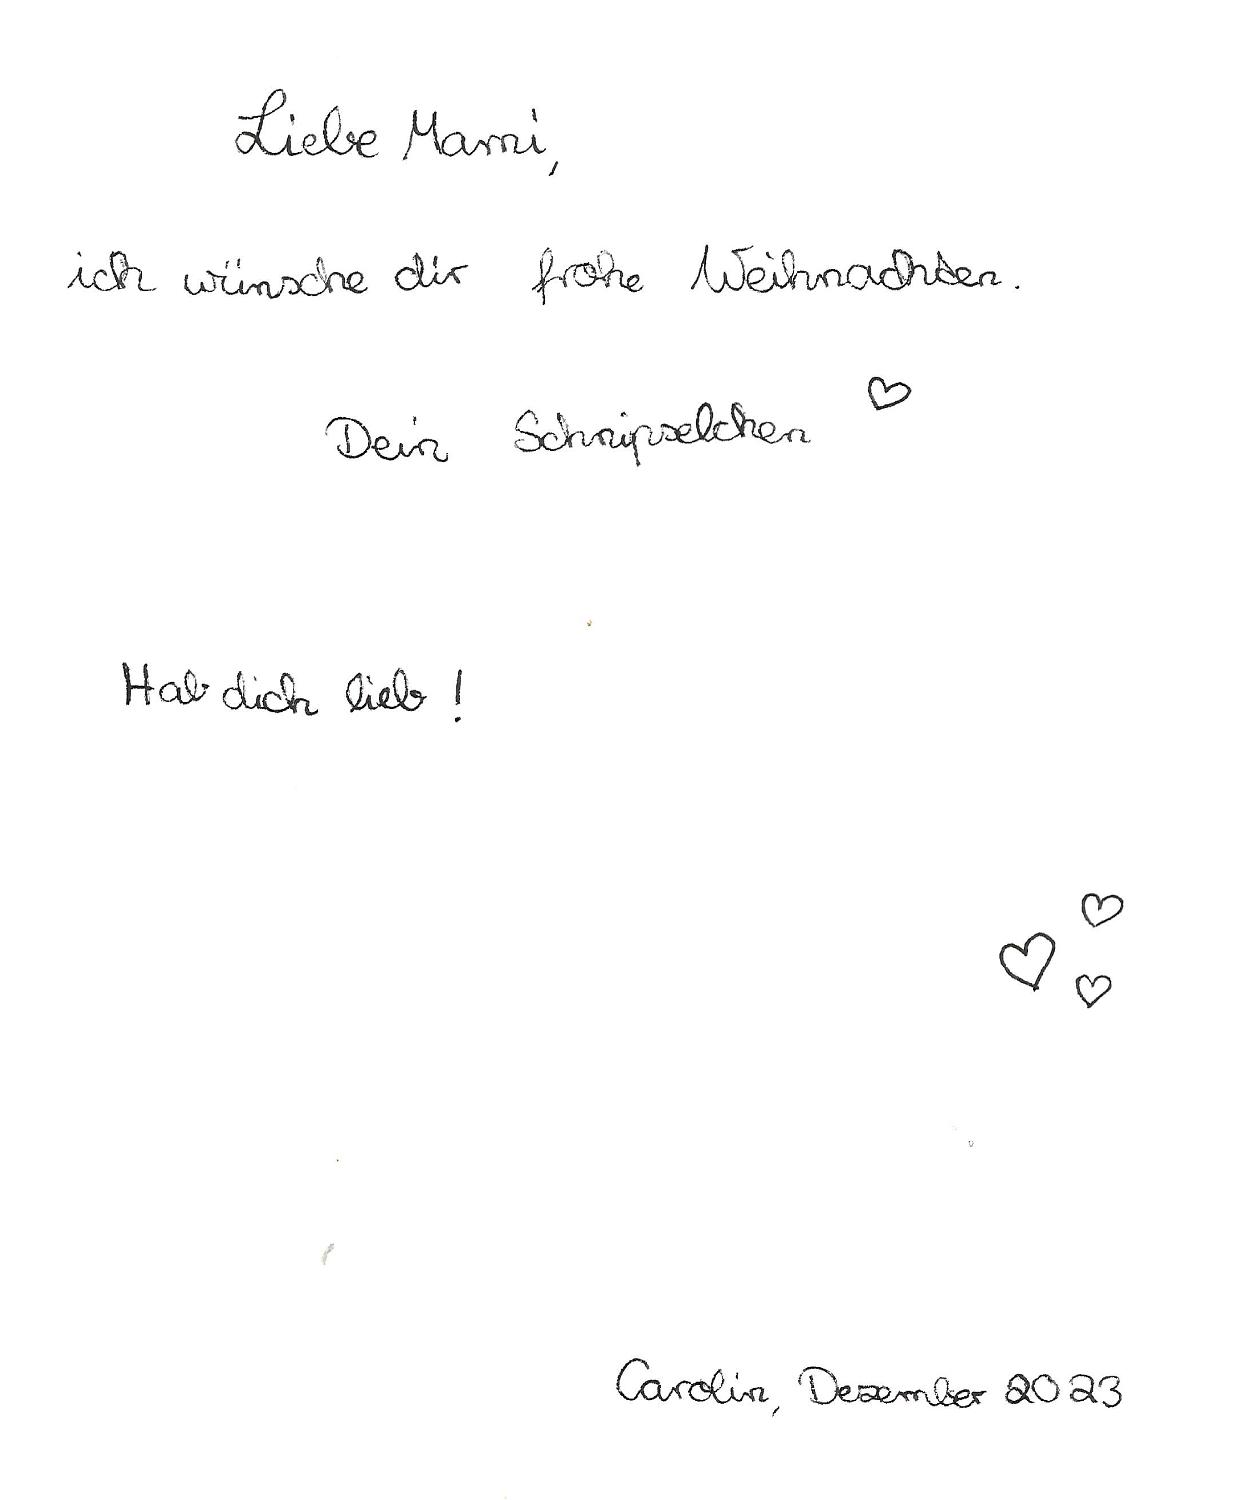 Liebe Mami,
ich wünsche dir frohe Weihnachten.
Dein Schnipselchen ♡
Hab dich lieb!
Carolin, Dezember 2023